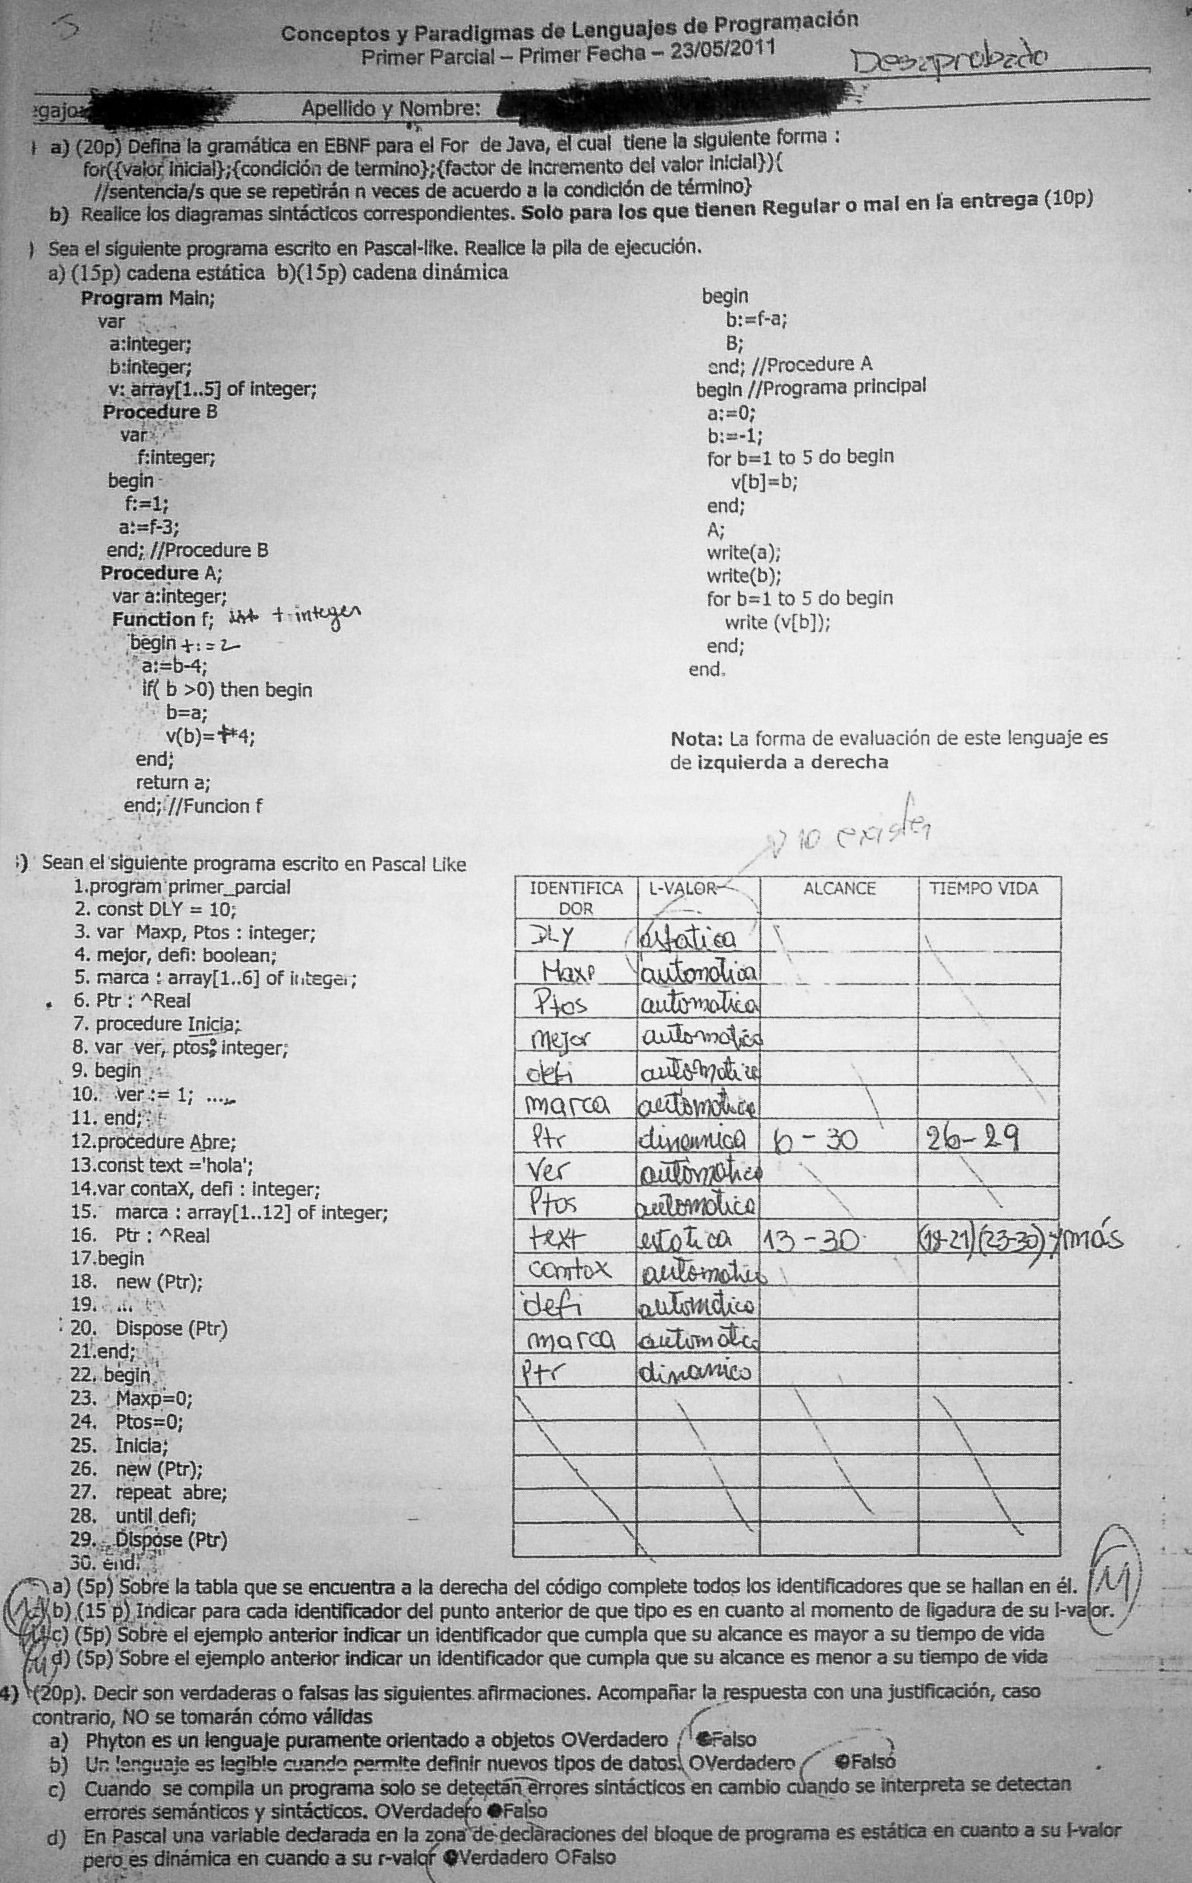 Conceptos y Paradigmas de Lenguajes de Programación
Primer Parcial – Primer Fecha – 23/05/2011
Desaprobado
egajo:
Apellido y Nombre:
a) (20p) Defina la gramática en EBNF para el For de Java, el cual tiene la siguiente forma :
for({valor inicial};{condición de termino};{factor de incremento del valor inicial}){
//sentencia/s que se repetirán n veces de acuerdo a la condición de término}
b) Realice los diagramas sintácticos correspondientes. Solo para los que tienen Regular o mal en la entrega (10p)
) Sea el siguiente programa escrito en Pascal-like. Realice la pila de ejecución.
a) (15p) cadena estática b)(15p) cadena dinámica
Program Main;
var
a:integer;
b:integer;
v: array[1..5] of integer;
Procedure B
var
f:integer;
begin
f:=1;
a:=f-3;
end; //Procedure B
Procedure A;
var a:integer;
Function f; t:integer
begin t:=2
a:=b-4;
if( b >0) then begin
b=a;
v(b)=t*4;
end;
return a;
end; //Funcion f
begin
b:=f-a;
B;
end; //Procedure A
begin //Programa principal
a:=0;
b:=-1;
for b=1 to 5 do begin
v[b]=b;
end;
A;
write(a);
write(b);
for b=1 to 5 do begin
write (v[b]);
end;
end.
Nota: La forma de evaluación de este lenguaje es
de izquierda a derecha
no existen
) Sean el siguiente programa escrito en Pascal Like
1.program primer_parcial
2. const DLY = 10;
3. var Maxp, Ptos : integer;
4. mejor, defi: boolean;
5. marca : array[1..6] of integer;
6. Ptr : ^Real
7. procedure Inicia;
8. var ver, ptos: integer;
9. begin
10. ver := 1; ....
11. end;
12.procedure Abre;
13.const text ='hola';
14.var contaX, defi : integer;
15. marca : array[1..12] of integer;
16. Ptr : ^Real
17.begin
18. new (Ptr);
19. ...
20. Dispose (Ptr)
21.end;
22. begin
23. Maxp=0;
24. Ptos=0;
25. Inicia;
26. new (Ptr);
27. repeat abre;
28. until defi;
29. Dispose (Ptr)
30. end.
IDENTIFICA DOR L-VALOR ALCANCE TIEMPO VIDA
DLY estatica
Maxp automatica
Ptos automatica
mejor automatica
defi automatica
marca automatica
Ptr dinamica 6-30 26-29
Ver automatica
Ptos automatica
text estatica 13-30 (18-21)(23-30) y más
contax automatica
defi automatico
marca automatica
Ptr dinamico
a) (5p) Sobre la tabla que se encuentra a la derecha del código complete todos los identificadores que se hallan en él.
b) (15 p) Indicar para cada identificador del punto anterior de que tipo es en cuanto al momento de ligadura de su l-valor.
c) (5p) Sobre el ejemplo anterior indicar un identificador que cumpla que su alcance es mayor a su tiempo de vida
d) (5p) Sobre el ejemplo anterior indicar un identificador que cumpla que su alcance es menor a su tiempo de vida
4) (20p). Decir son verdaderas o falsas las siguientes afirmaciones. Acompañar la respuesta con una justificación, caso
contrario, NO se tomarán cómo válidas
a) Phyton es un lenguaje puramente orientado a objetos OVerdadero OFalso
b) Un lenguaje es legible cuando permite definir nuevos tipos de datos. OVerdadero OFalso
c) Cuando se compila un programa solo se detectán errores sintácticos en cambio cuando se interpreta se detectan
errores semánticos y sintácticos. OVerdadero OFalso
d) En Pascal una variable declarada en la zona de declaraciones del bloque de programa es estática en cuanto a su l-valor
pero es dinámica en cuando a su r-valor OVerdadero OFalso